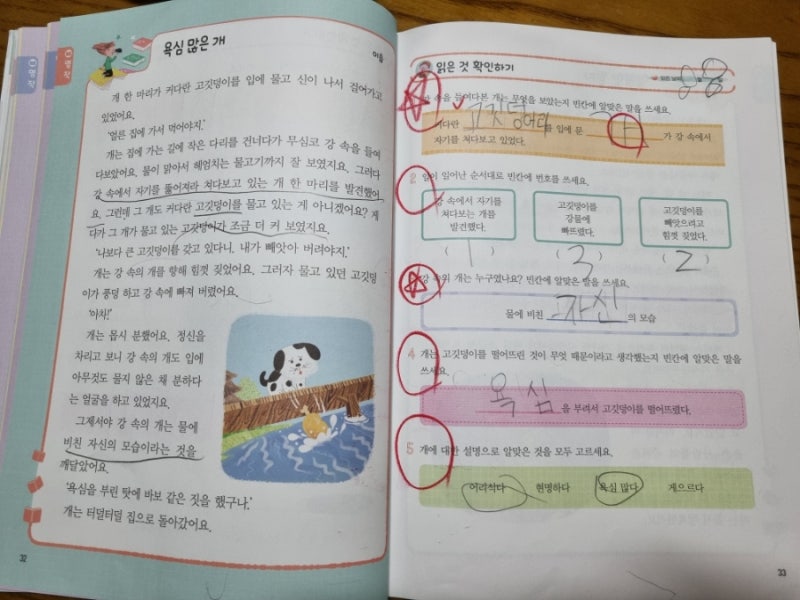 욕심 많은 개
이솝
개 한 마리가 커다란 고깃덩이를 입에 물고 신이 나서 걸어가고
있었어요.
'얼른 집에 가서 먹어야지.'
개는 집에 가는 길에 작은 다리를 건너다가 무심코 강 속을 들여
다보았어요. 물이 맑아서 헤엄치는 물고기까지 잘 보였지요. 그러다
강 속에서 자기를 뚫어져라 쳐다보고 있는 개 한 마리를 발견했어
요. 그런데 그 개도 커다란 고깃덩이를 물고 있는 게 아니겠어요? 게
다가 그 개가 물고 있는 고깃덩이가 조금 더 커 보였지요.
'나보다 큰 고깃덩이를 갖고 있다니. 내가 빼앗아 버려야지.'
개는 강 속의 개를 향해 힘껏 짖었어요. 그러자 물고 있던 고깃덩
이가 풍덩 하고 강 속에 빠져 버렸어요.
'아차!'
개는 몹시 분했어요. 정신을
차리고 보니 강 속의 개도 입에
아무것도 물지 않은 채 분하다
는 얼굴을 하고 있었지요.
그제서야 강 속의 개는 물에
비친 자신의 모습이라는 것을
깨달았어요.
'욕심을 부린 탓에 바보 같은 짓을 했구나.'
개는 터덜터덜 집으로 돌아갔어요.
32
읽은 것 확인하기
속을 들여다본 개는 무엇을 보았는지 빈칸에 알맞은 말을 쓰세요.
커다란 고깃덩어리를 입에 문 개가 강 속에서
자기를 쳐다보고 있었다.
2 일이 일어난 순서대로 빈칸에 번호를 쓰세요.
강 속에서 자기를
쳐다보는 개를
발견했다.
고깃덩이를
강물에
빠뜨렸다.
고깃덩이를
빼앗으려고
힘껏 짖었다.
( 1 ) ( 3 ) ( 2 )
강 속의 개는 누구였나요? 빈칸에 알맞은 말을 쓰세요.
물에 비친 자신의 모습
4 개는 고깃덩이를 떨어뜨린 것이 무엇 때문이라고 생각했는지 빈칸에 알맞은 말을
쓰세요.
욕심을 부려서 고깃덩이를 떨어뜨렸다.
5 개에 대한 설명으로 알맞은 것을 모두 고르세요.
어리석다 현명하다 욕심 많다 게으르다
33